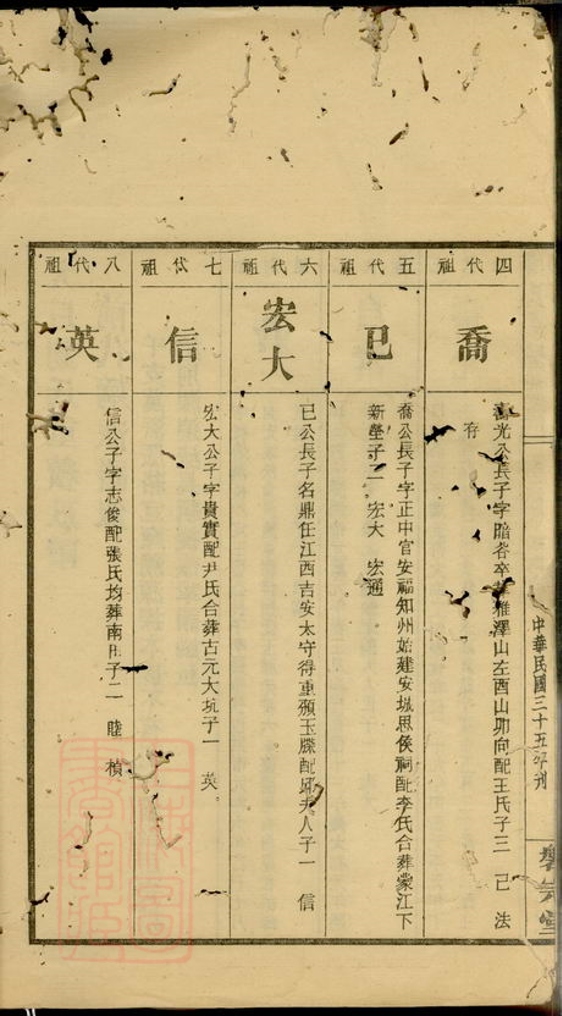 中華民國三十五年刊
四代祖
喬
光公長子字賠卒葬雅澤山左酉山卯向配王氏子三 己 法
存
五代祖
已
喬公長子字正中官安福知州始建安城思侯祠配李氏合葬蒙江下
新塋子二 宏大 宏通
六代祖
宏大
已公長子名鼎任江西吉安太守得重頒玉牒配夫人子一 信
七代祖
信
宏大公子字貴實配尹氏合葬古元大坑子一 英
八代祖
英
信公子字志俊配張氏均葬南子二 睦 楨